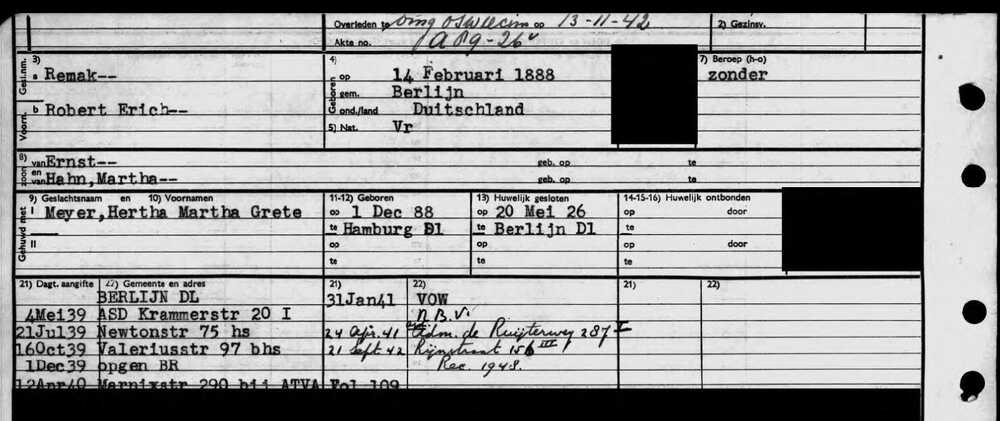 Overleden te omg oswiecim op 13-11-42 2) Gezinsv.
Akte no. A 89-26v
3) 4) 7) Beroep (h-o)
Gesl.nm. a Remak-- Geboren op 14 Februari 1888 zonder
gem. Berlijn
Voorn. b Robert Erich-- ond./land Duitschland
5) Nat. Vr
8) zoon van Ernst-- geb. op te
en van Hahn,Martha-- geb. op te
9) Geslachtsnaam en 10) Voornamen 11-12) Geboren 13) Huwelijk gesloten 14-15-16) Huwelijk ontbonden
Gehuwd met I Meyer,Hertha Martha Grete op 1 Dec 88 op 20 Mei 26 op door
te Hamburg Dl te Berlijn Dl te
II op op op door
te te te
21) Dagt. aangifte 22) Gemeente en adres 21) 22) 21) 22)
BERLIJN DL 31Jan41 VOW
4Mei39 ASD Krammerstr 20 I N.B.V.
21Jul39 Newtonstr 75 hs 24 Apr. 41 Adm. de Ruijterweg 287 I
16Oct39 Valeriusstr 97 bhs 21 Sept 42 Rijnstraat 156 III
1Dec39 opgen BR Rec. 1948.
12Apr40 Marnixstr 290 bij ATVA Fol 109